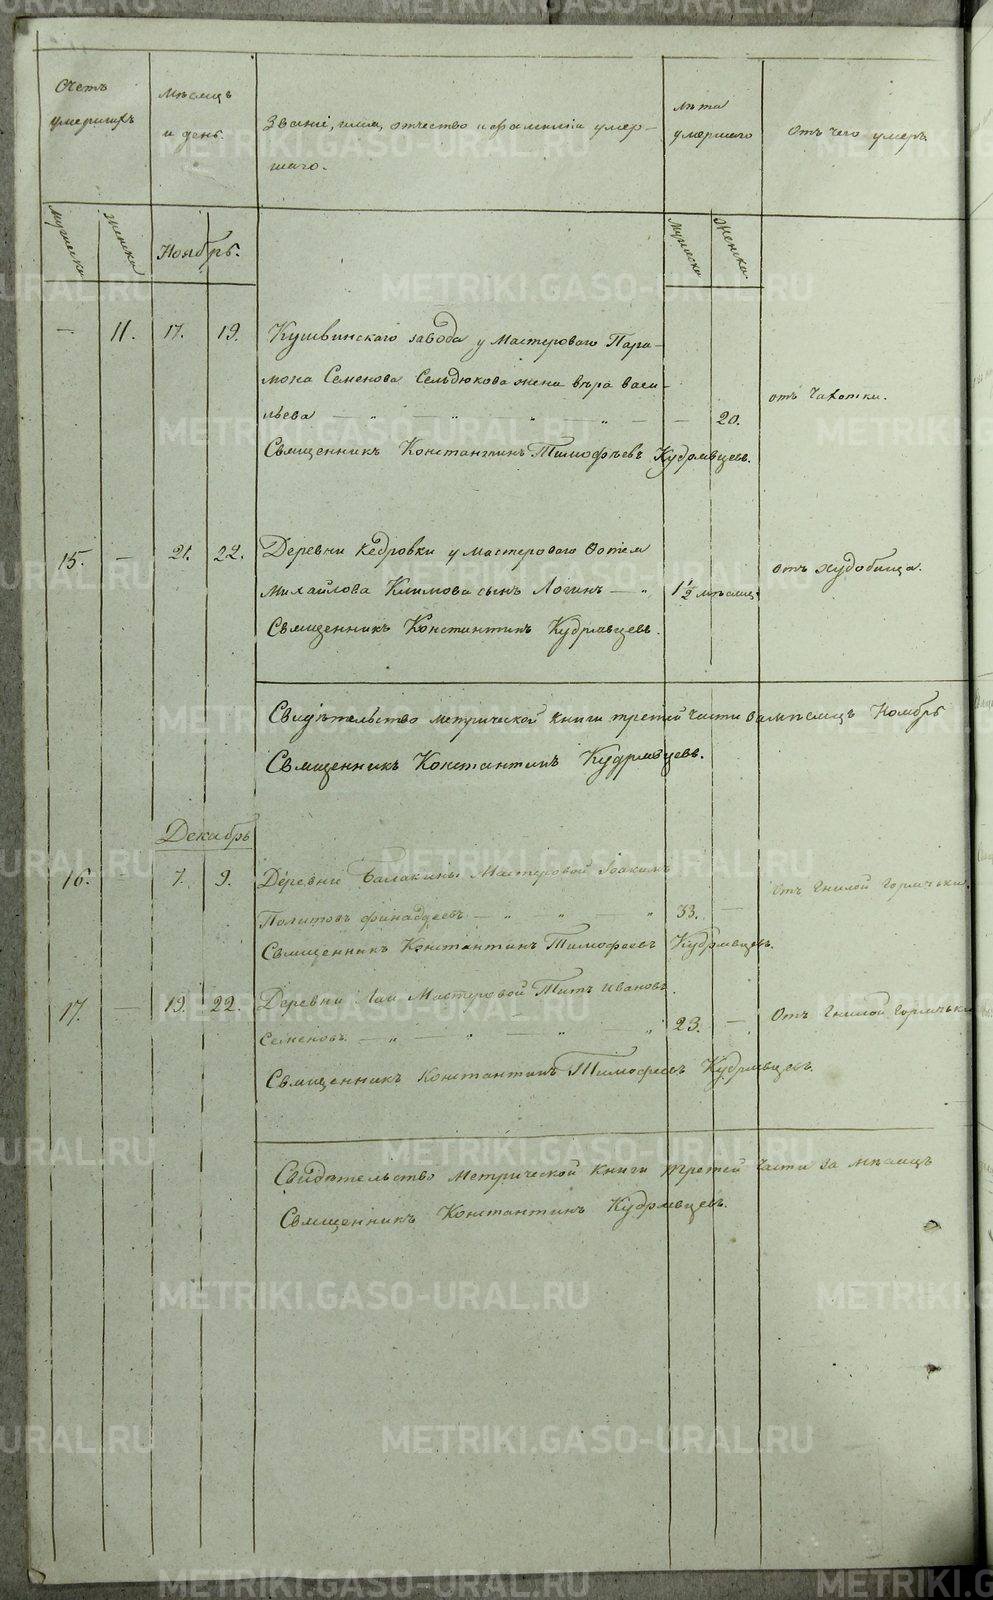 Счетъ умершихъ
Мѣсяцъ и день.
Званіе, имя, отчество и фамилія умер-
шаго.
лѣта умершаго
Отъ чего умеръ.
мужеска
женска
Ноябрь.
мужеска
женска
— 11. 17. 19. Кушвинскаго завода у Мастероваго Пара-
мона Семенова Сельдюкова жена Вѣра Васи-
льева — 20. отъ Чахотки.
Священникъ Константинъ Тимофѣевъ Кудрявцевъ.
15. — 21. 22. Деревни Кедровки у мастероваго
Михайлова Климова сынъ Логинъ — 1 1/2 мѣсяц. отъ худобища.
Священникъ Константинъ Кудрявцевъ.
Свидѣтельство метрической книги третей части за мѣсяцъ Ноябрь
Священникъ Константинъ Кудрявцевъ.
Декабрь
16. — 7. 9. Деревни Балакины Мастеровой Іоакимъ
Политовъ — 33. — Отъ Гнилой Горячьки.
Священникъ Константинъ Тимофеевъ Кудрявцевъ.
17. — 19. 22. Деревни Лаи Мастеровой Титъ Ивановъ
Семеновъ — 23. — Отъ Гнилой Горячьки
Священникъ Константинъ Тимофеевъ Кудрявцевъ.
Свидѣтельство Метрической Книги третей Части за мѣсяцъ
Священникъ Константинъ Кудрявцевъ.
METRIKI.GASO-URAL.RU